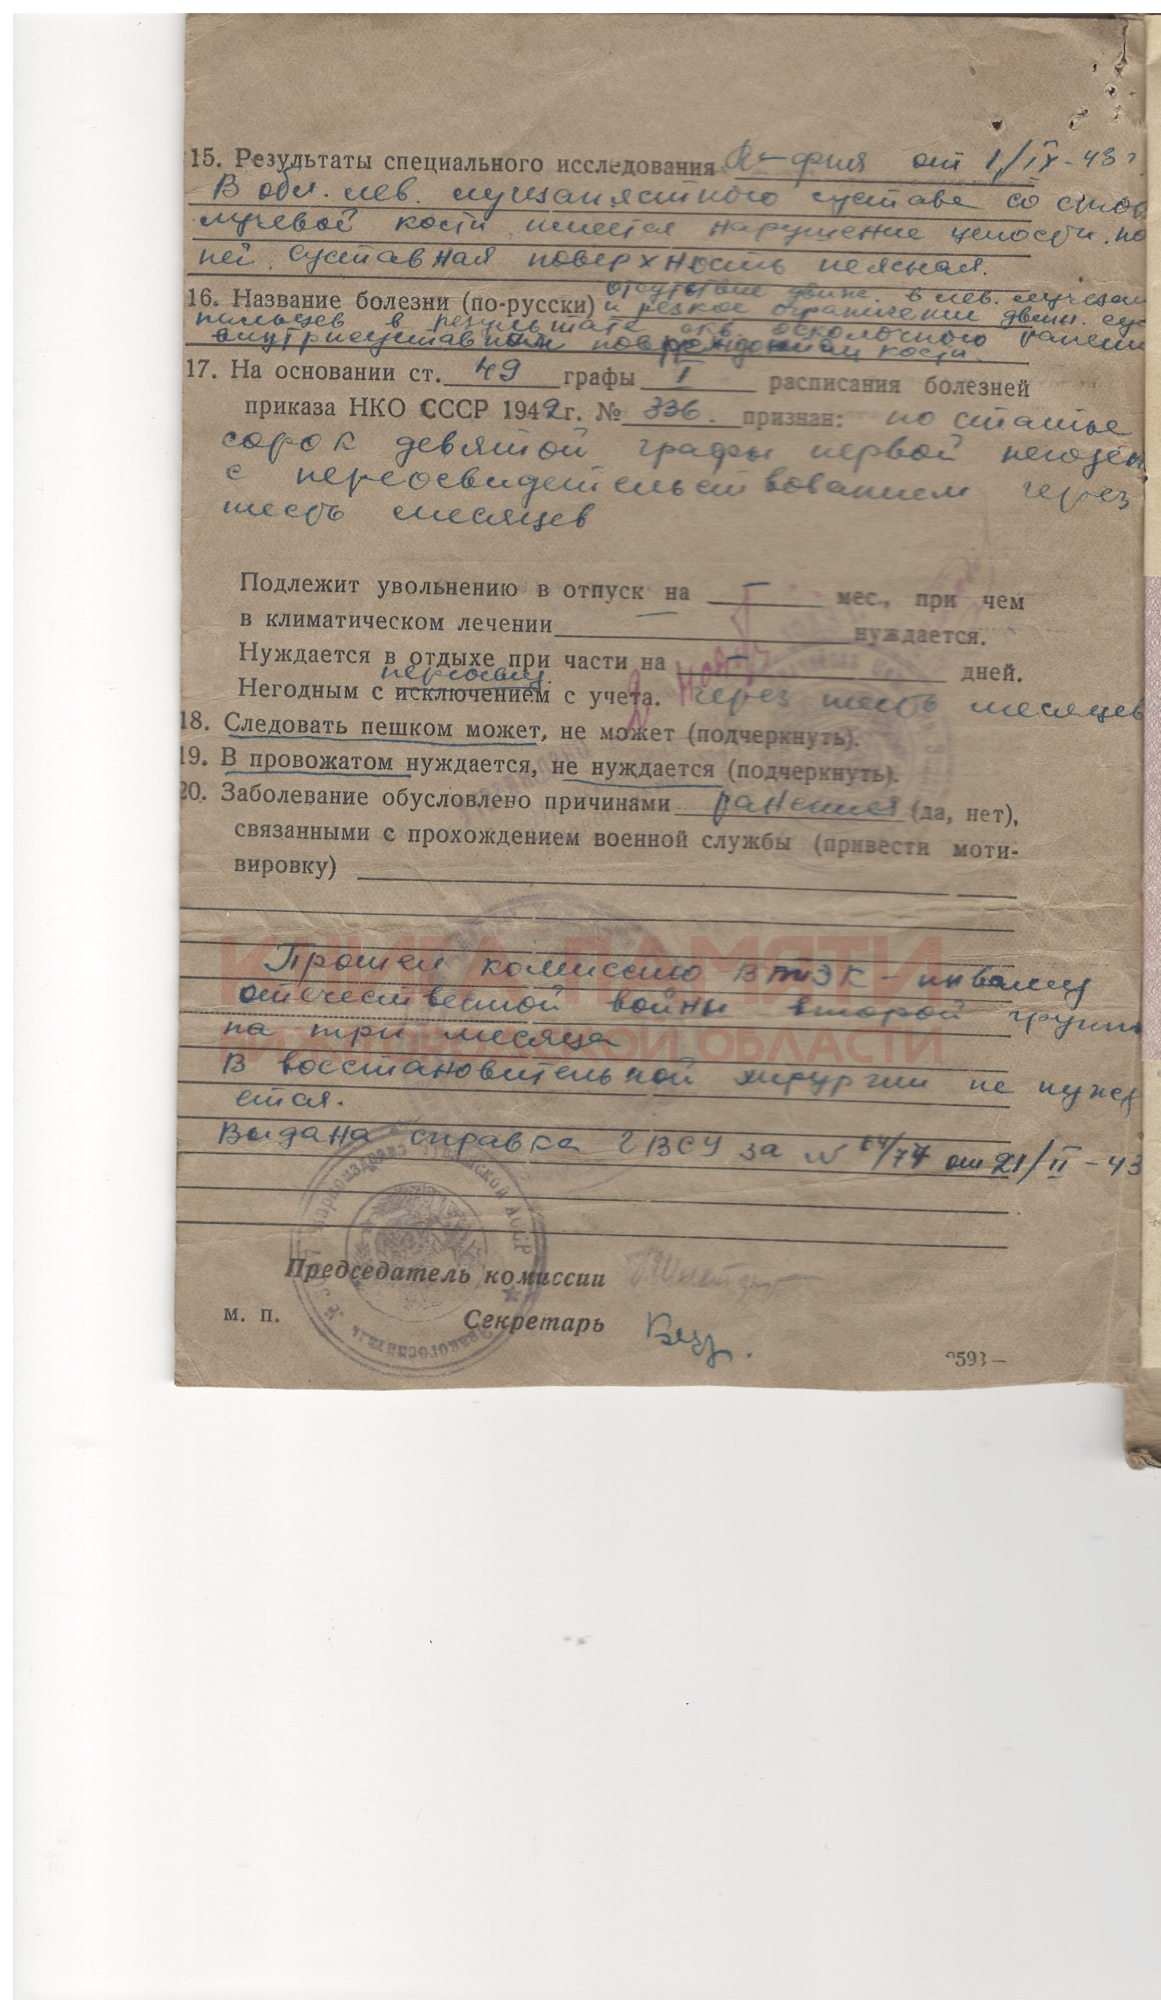 15. Результаты специального исследования R-фия от 1/IX-43 г
В обл. лев. лучезапястного сустава со стор
лучевой кости имеется нарушение целости
ней, суставная поверхность неясная.
16. Название болезни (по-русски) отсутствие движ. в лев. лучезап
и резкое ограничение движ.
пальцев в результате скв. осколочного ранени
внутрисуставным повреждением кости.
17. На основании ст. 49 графы I расписания болезней
приказа НКО СССР 1942 г. № 336. признан: по статье
сорок девятой графы первой негоден
с переосвидетельствованием через
шесть месяцев
Подлежит увольнению в отпуск на — мес., при чем
в климатическом лечении — нуждается.
Нуждается в отдыхе при части на — дней.
Негодным с исключением с учета. через шесть месяцев
18. Следовать пешком может, не может (подчеркнуть).
19. В провожатом нуждается, не нуждается (подчеркнуть).
20. Заболевание обусловлено причинами ранения (да, нет),
связанными с прохождением военной службы (привести моти-
вировку)
КНИГА ПАМЯТИ
НИЖЕГОРОДСКОЙ ОБЛАСТИ
Прошел комиссию ВТЭК – инвалид
отечественной войны второй групп
на три месяца
В восстановительной хирургии не нужд
ется.
Выдана справка ГВСУ за № 64/77 от 21/II-43
Председатель комиссии
м. п.
Секретарь